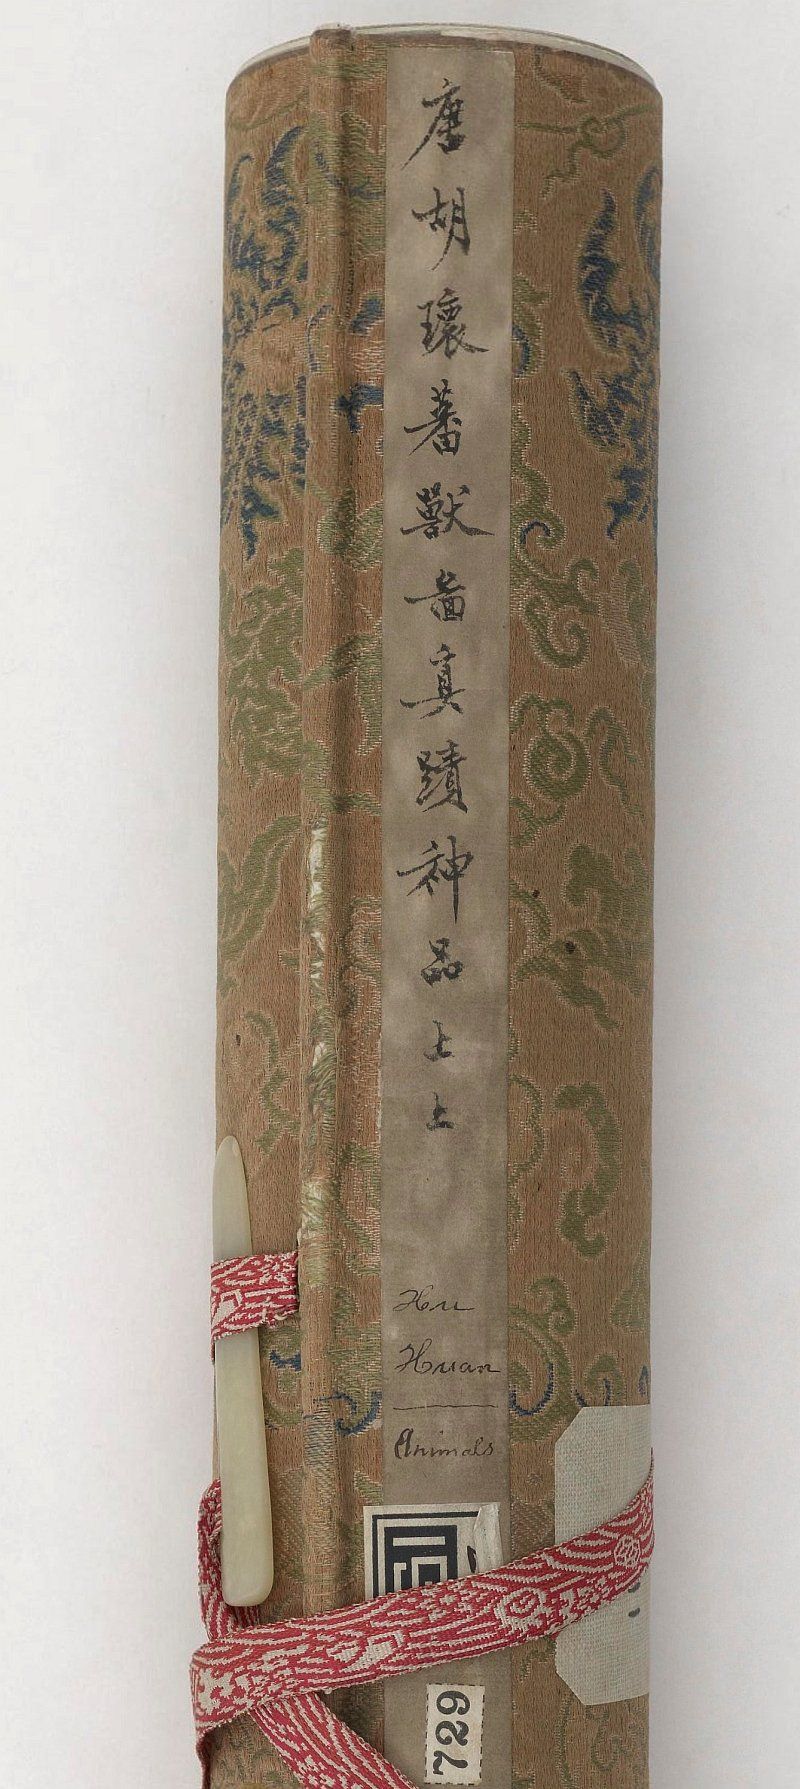 唐胡瓌蕃獸啚真蹟神品上上
Hu
Huan
Animals
729